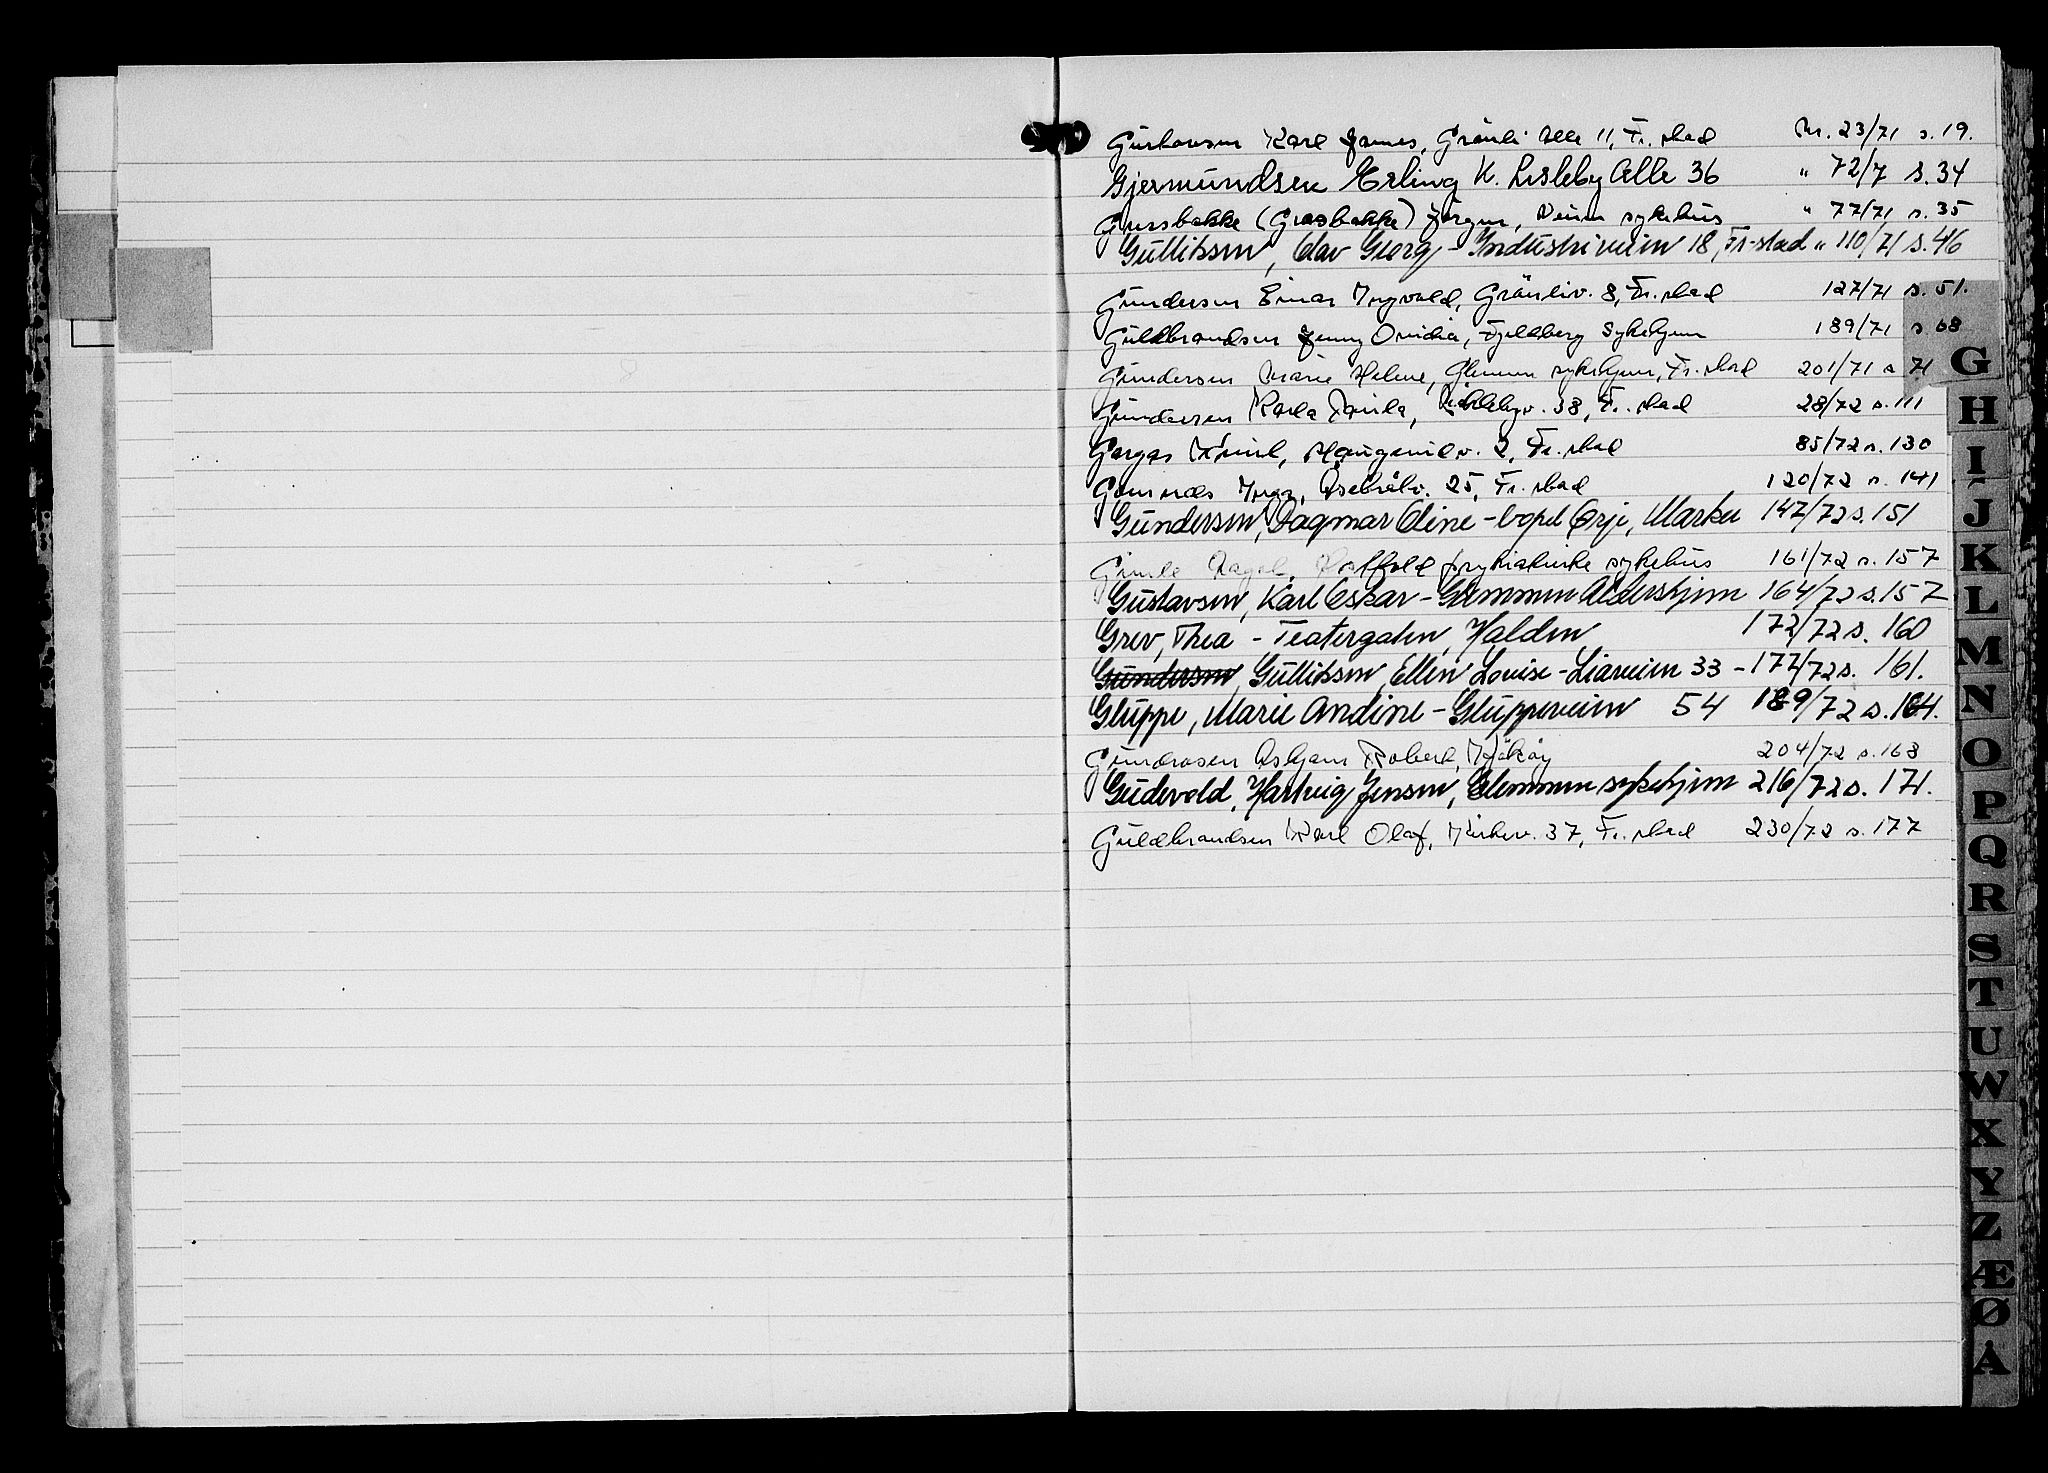 Gustavsen Karl James, Gråuli Alle 11, Fr.stad Nr. 23/71 s. 19.
Gjermundsen Erling K. Lisleby Alle 36 " 72/7 s. 34
(Grasbakke) Jørgen, Veum sykehus " 77/71 s. 35
Gullitssen, Olav Georg - Industriveien 18, Fr-stad " 110/71 s. 46
Gundersen Einar Yngvald, Gråuliv. 8, Fr.stad 127/71 s. 51.
Guldbrandsen Jenny Ovidia, Fjeldberg Sykehjem 189/71 s 68
Gundersen Marie Helene, Glemmen sykehjem, Fr.stad 201/71 s 71
Gundersen Karla Paula, Lislebyv. 38, Fr.stad 28/72 s. 111
Gargas Haugeveldv. 2, Fr.stad 85/72 s. 130
25, Fr.stad 120/72 s. 141
Gundersen, Dagmar Oline - bopel Ørje, Marker 147/72 s. 151
Østfold psykiatriske sykehus 161/72 s. 157
Gustavsen, Karl Oskar - Glemmen Aldershjem 164/72 s. 157
Grev, Thea - Teatergaten, Halden 172/72 s. 160
Gundersen, Gullitssen, Ellen Louise - Liaveien 33 - 177/72 s. 161.
Gluppe, Marie Andine - Gluppeveien 54 189/72 s. 164.
Gundrosen Asbjørn Robert, Kjøkøy 204/72 s. 168
Gudevold, Hartvig Jensen, Glemmen sykehjem 216/72 s. 171.
Guldbrandsen Karl Olaf, Kirkev. 37, Fr.stad 230/72 s. 177
G
H
I
J
K
L
M
N
O
P
Q
R
S
T
U
W
X
Y
Z
Æ
Ø
Å